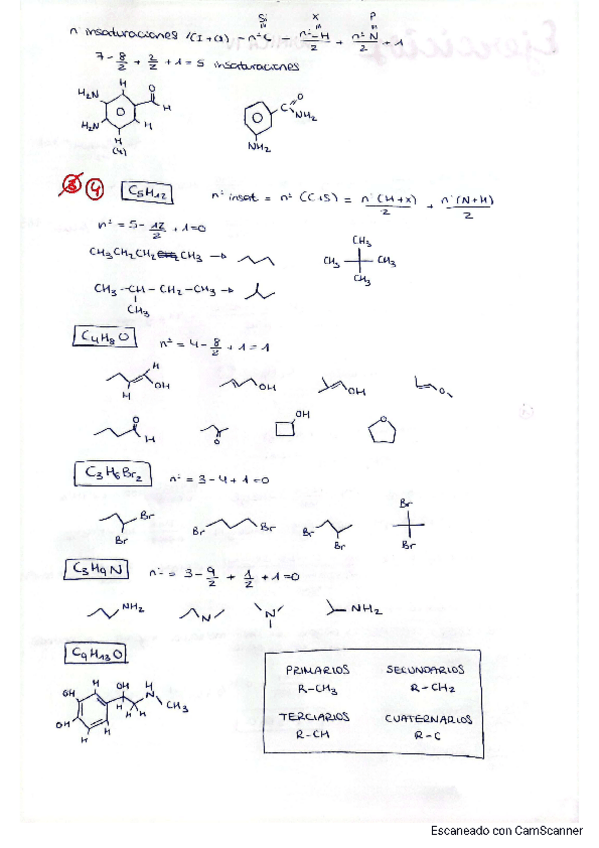 Si X P
n insaturaciones (CI+Cl) - nº C - nº H/2 + nº N/2 + 1
7 - 8/2 + 2/2 + 1 = 5 insaturaciones
H₂N H O H
H₂N H H (4)
C O NH₂ NH₂
3 4 C₅H₁₂ nº insat = nº (C+S) = nº(H+X)/2 + nº(N+H)/2
nº = 5 - 12/2 + 1 = 0
CH₃CH₂CH₂CH₂CH₃ →
CH₃ CH₃ CH₃ CH₃
CH₃ - CH - CH₂ - CH₃ →
CH₃
C₄H₈O nº = 4 - 8/2 + 1 = 1
H OH H OH OH O
O H O OH O
C₃H₆Br₂ nº = 3 - 4 + 1 = 0
Br Br Br Br Br Br Br Br
C₃H₉N nº = 3 - 9/2 + 1/2 + 1 = 0
NH₂ N N NH₂
C₉H₁₃O
OH H OH H N CH₃
OH H H H H
PRIMARIOS SECUNDARIOS
R-CH₃ R-CH₂
TERCIARIOS CUATERNARIOS
R-CH R-C
Escaneado con CamScanner